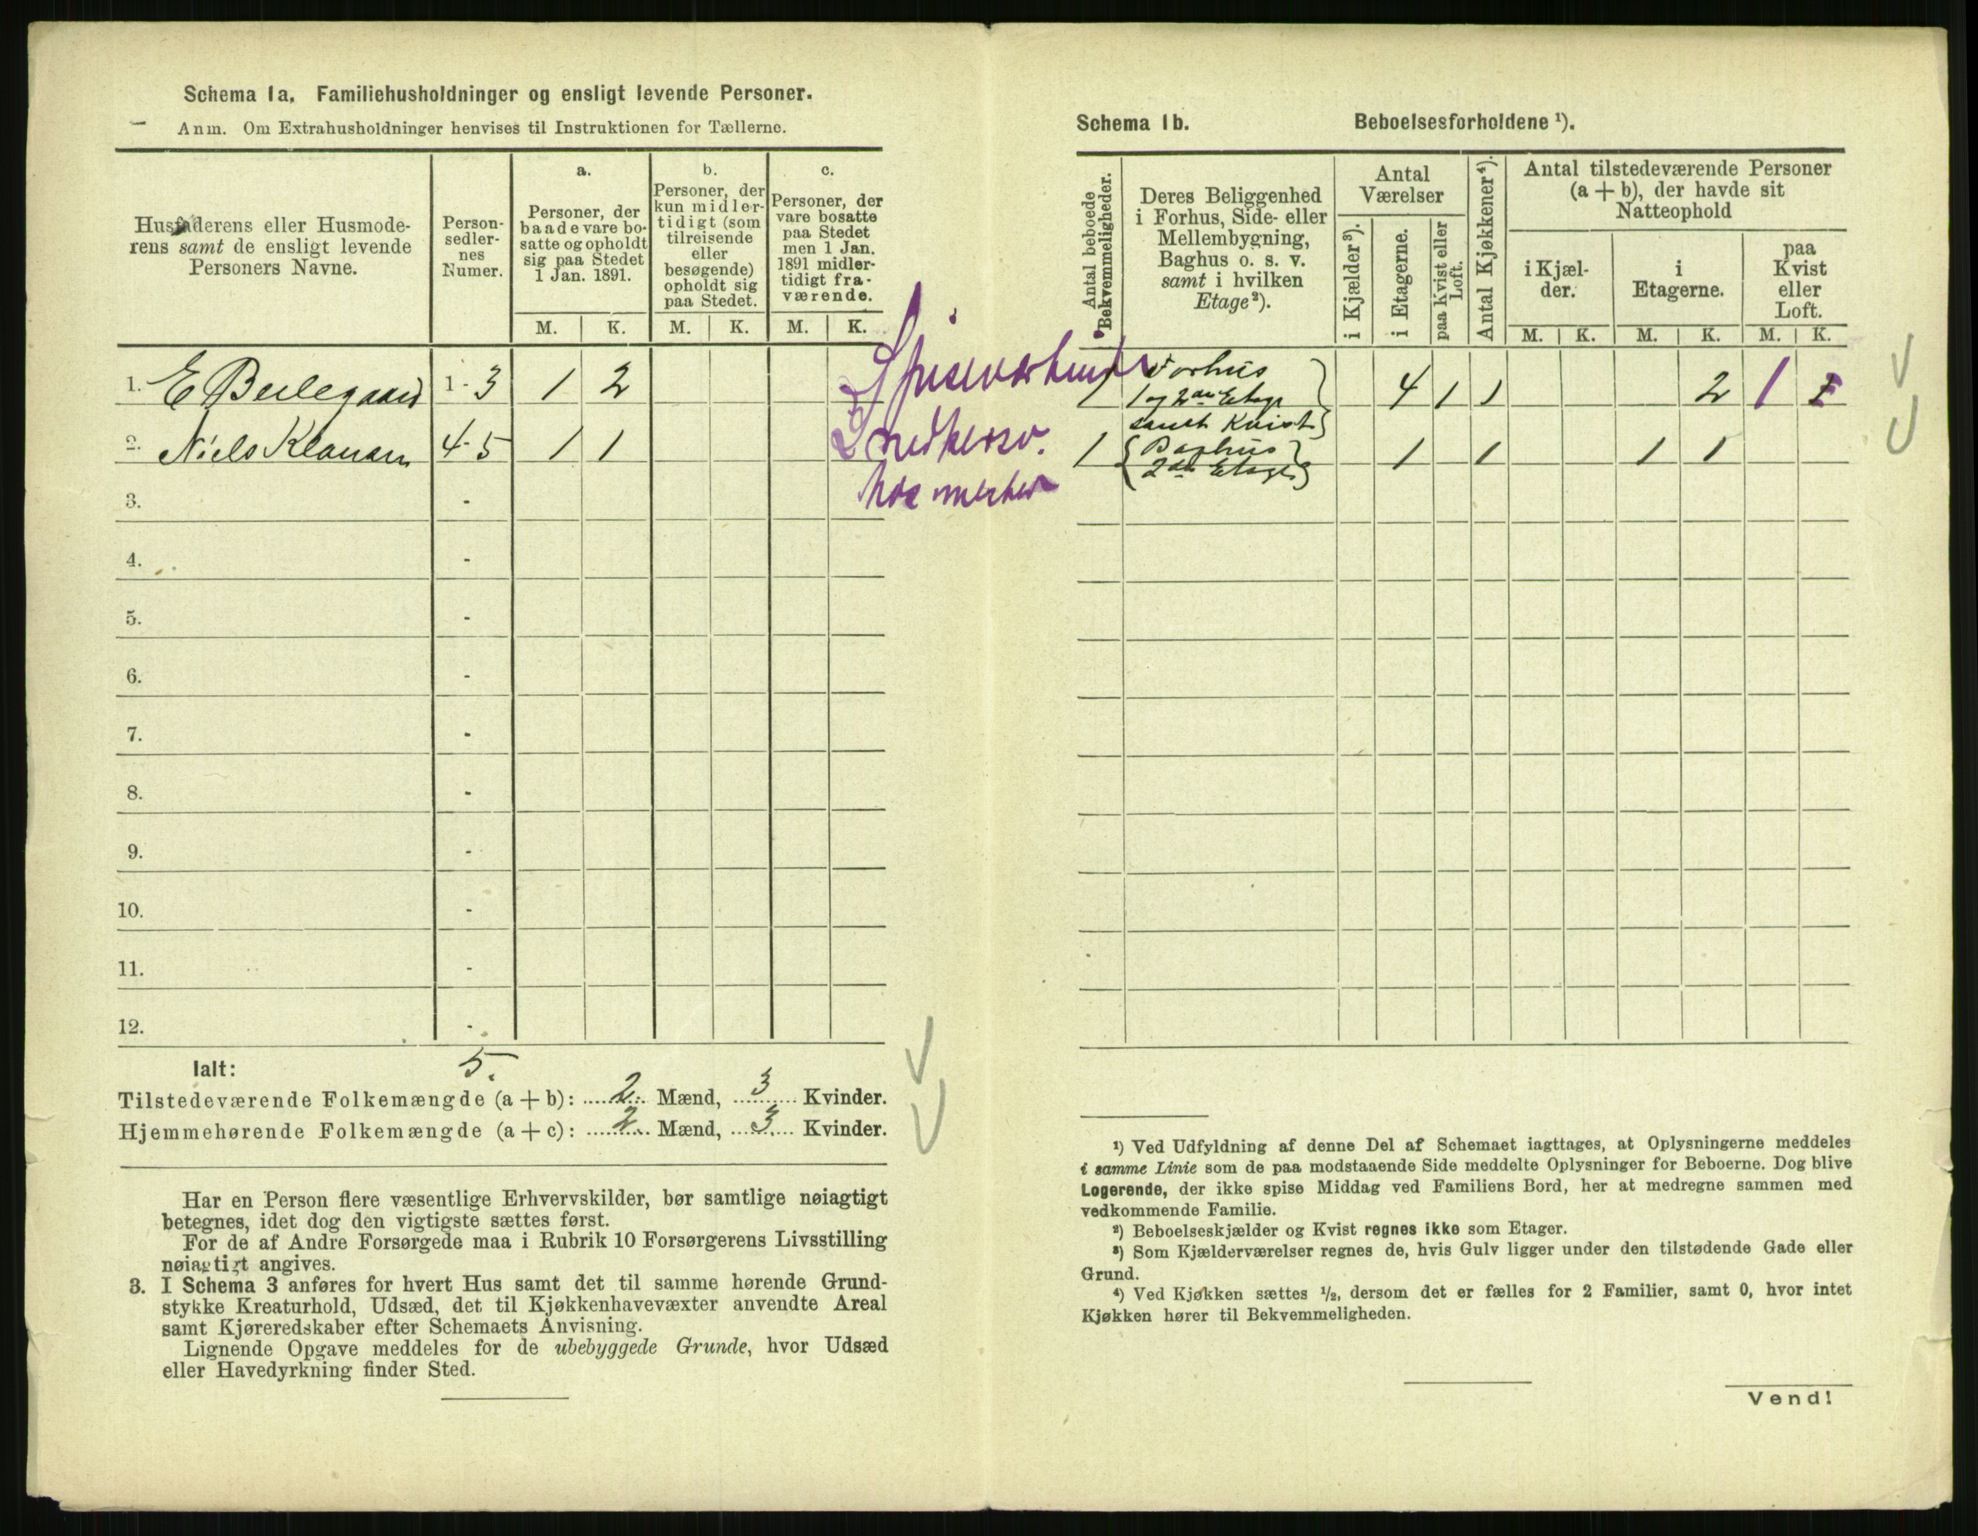 Schema 1a. Familiehusholdninger og ensligt levende Personer.
Anm. Om Extrahusholdninger henvises til Instruktionen for Tællerne.
Husfaderens eller Husmode-
rens samt de ensligt levende
Personers Navne.
Person-
sedler-
nes
Numer.
a.
Personer, der
baade vare bo-
satte og opholdt
sig paa Stedet
1 Jan. 1891.
b.
Personer, der
kun midler-
tidigt (som
tilreisende
eller
besøgende)
opholdt sig
paa Stedet.
c.
Personer, der
vare bosatte
paa Stedet
men 1 Jan.
1891 midler-
tidigt fra-
værende.
M. K. M. K. M. K.
1. E Beilegaard 1 - 3 1 2
2. Niels Klausen 4 - 5 1 1
3. -
4. -
5. -
6. -
7. -
8. -
9. -
10. -
11. -
12. -
Ialt: 5.
Tilstedeværende Folkemængde (a + b): 2 Mænd, 3 Kvinder.
Hjemmehørende Folkemængde (a + c): 2 Mænd, 3 Kvinder.
Har en Person flere væsentlige Erhvervskilder, bør samtlige nøiagtigt
betegnes, idet dog den vigtigste sættes først.
For de af Andre Forsørgede maa i Rubrik 10 Forsørgerens Livsstilling
nøiagtigt angives.
3. I Schema 3 anføres for hvert Hus samt det til samme hørende Grund-
stykke Kreaturhold, Udsæd, det til Kjøkkenhavevæxter anvendte Areal
samt Kjøreredskaber efter Schemaets Anvisning.
Lignende Opgave meddeles for de ubebyggede Grunde, hvor Udsæd
eller Havedyrkning finder Sted.
Schema 1b. Beboelsesforholdene ¹).
Antal beboede
Bekvemmeligheder.
Deres Beliggenhed
i Forhus, Side- eller
Mellembygning,
Baghus o. s. v.
samt i hvilken
Etage²).
Antal
Værelser
i Kjælder³).
i Etagerne.
paa Kvist eller
Loft.
Antal Kjøkkener⁴).
Antal tilstedeværende Personer
(a + b), der havde sit
Natteophold
i Kjæl-
der.
i
Etagerne.
paa
Kvist
eller
Loft.
M. K. M. K. M. K.
1 Forhus
1 og 2den Etage 4 1 1 2 1
samt Kvist
1 Baghus 1 1 1 1
2den Etage
¹) Ved Udfyldning af denne Del af Schemaet iagttages, at Oplysningerne meddeles
i samme Linie som de paa modstaaende Side meddelte Oplysninger for Beboerne. Dog blive
Logerende, der ikke spise Middag ved Familiens Bord, her at medregne sammen med
vedkommende Familie.
²) Beboelseskjælder og Kvist regnes ikke som Etager.
³) Som Kjælderværelser regnes de, hvis Gulv ligger under den tilstødende Gade eller
Grund.
⁴) Ved Kjøkken sættes ½, dersom det er fælles for 2 Familier, samt 0, hvor intet
Kjøkken hører til Bekvemmeligheden.
Vend!